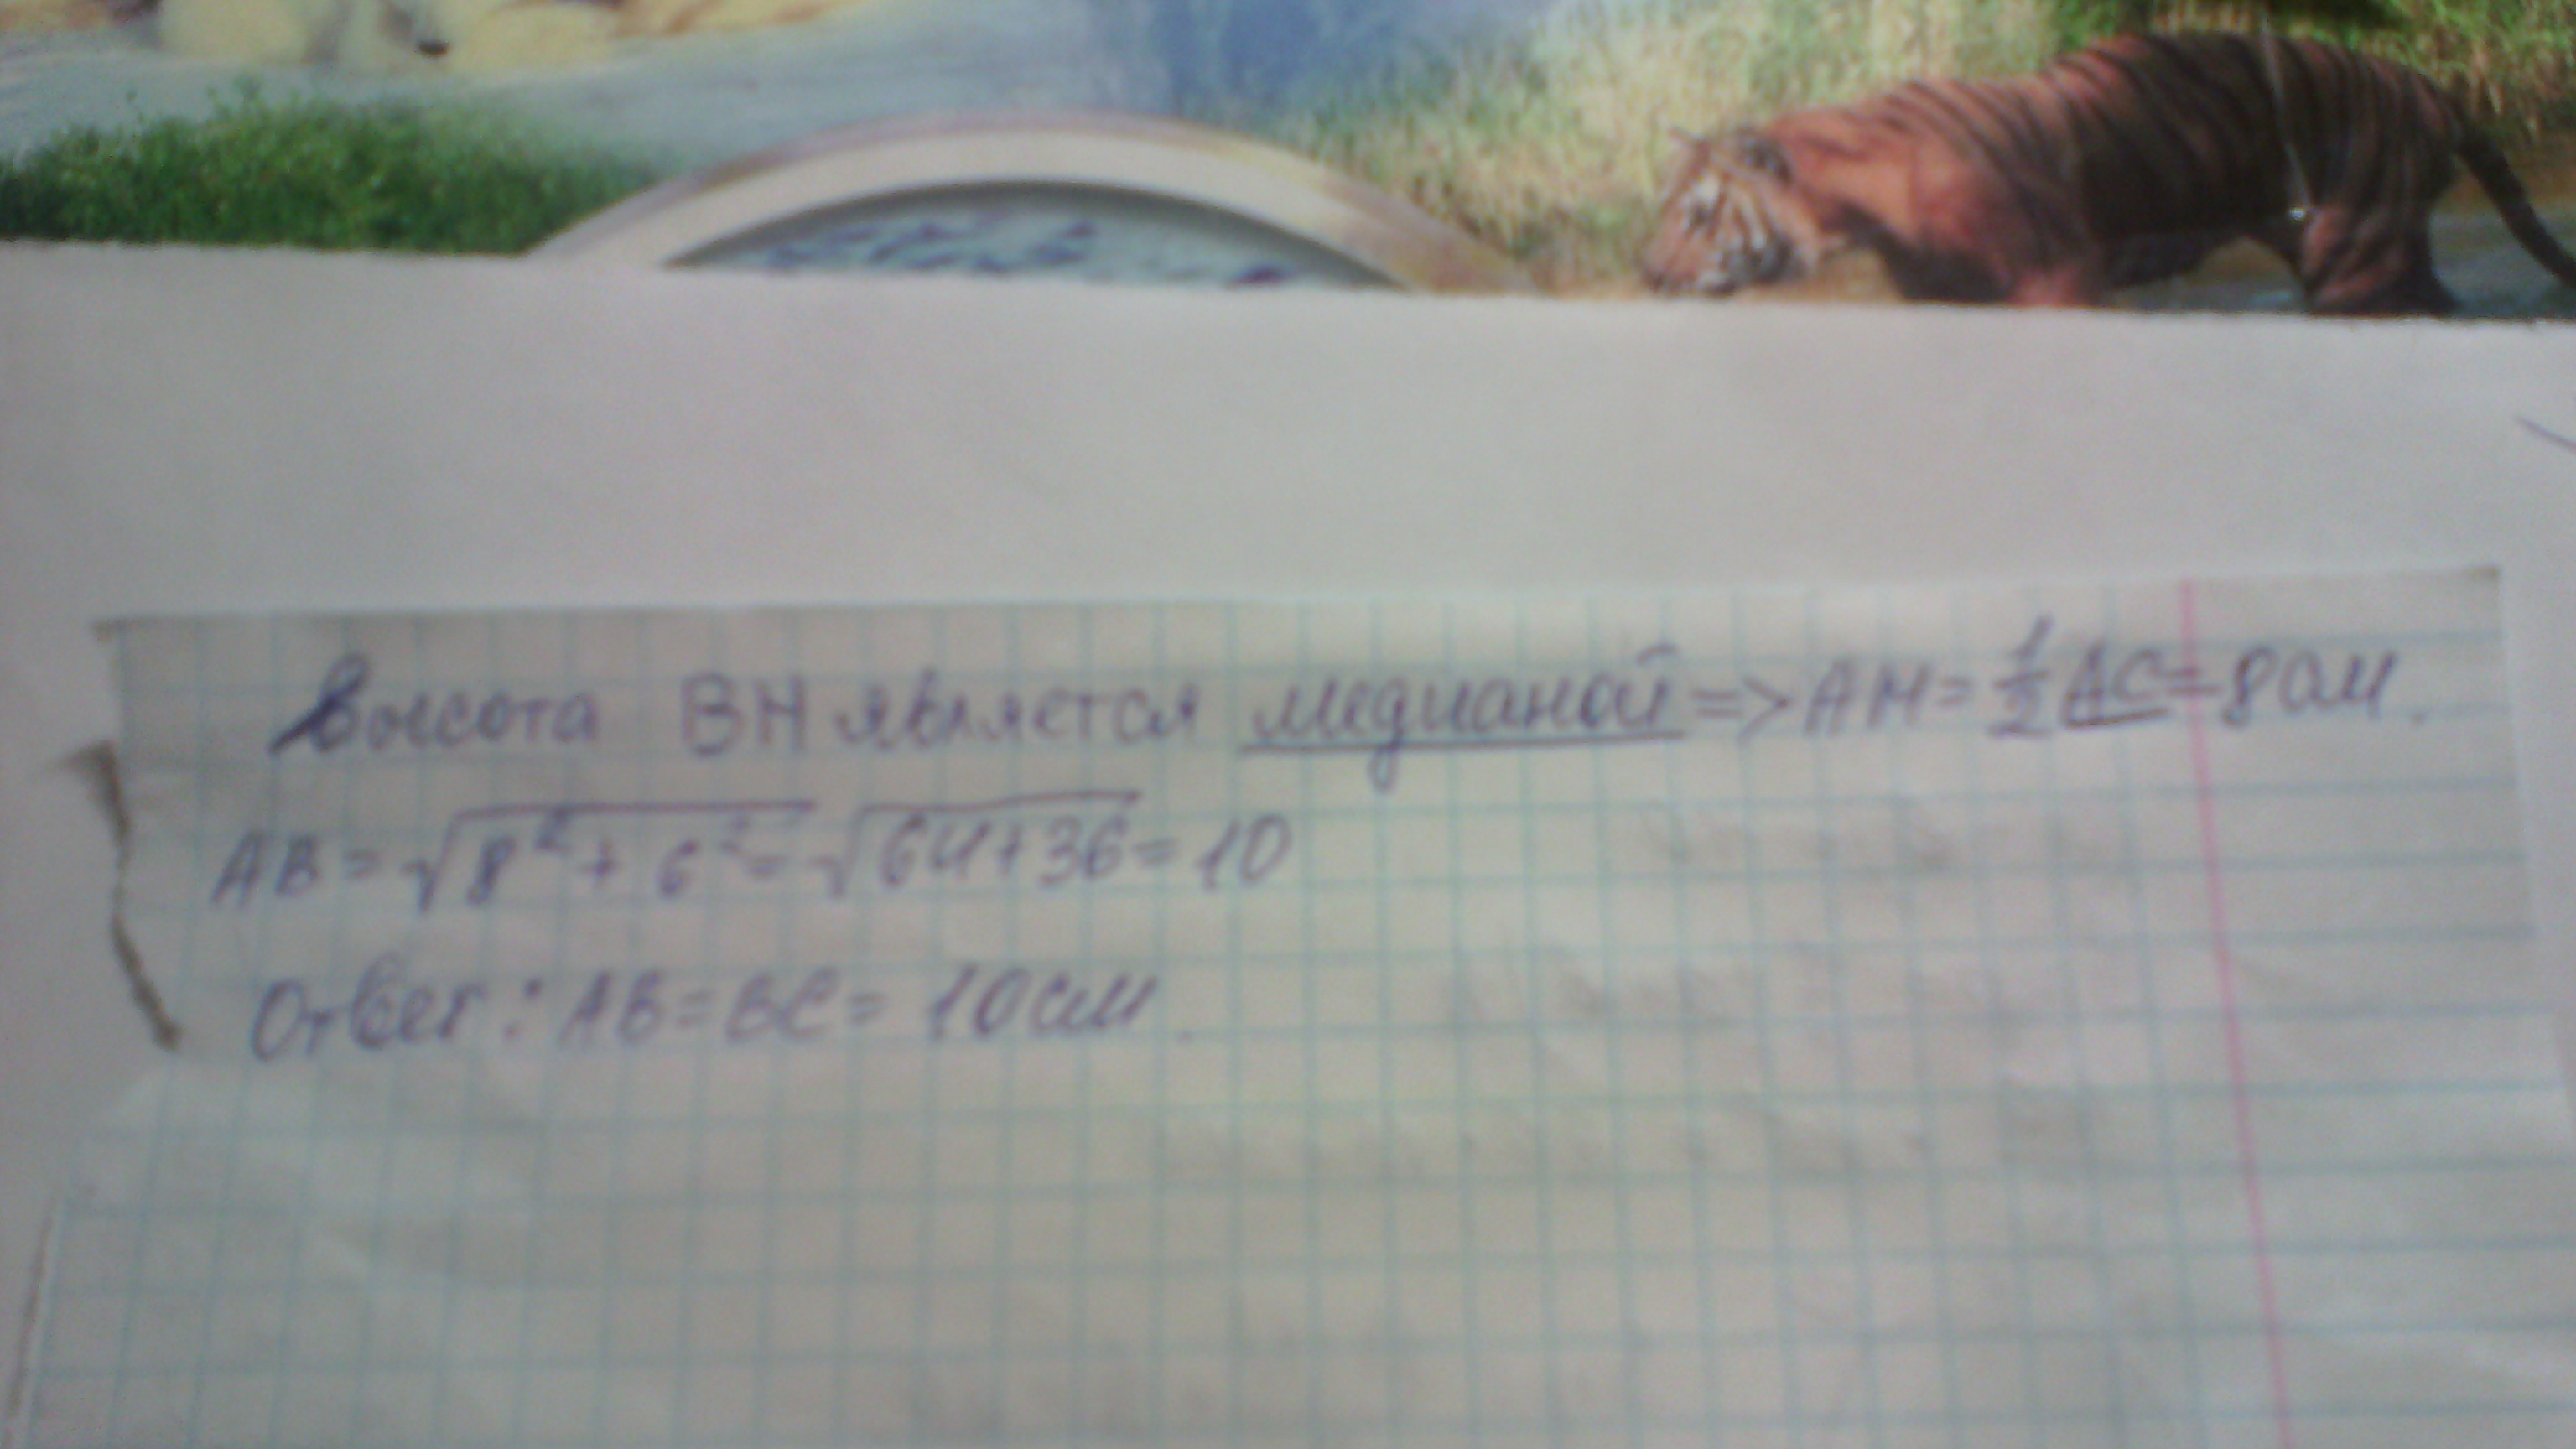 Высота BH является медианой => AH = 1/2 AC = 8 см.
AB = √8² + 6² = √64+36 = 10
Ответ: AB = BC = 10 см.